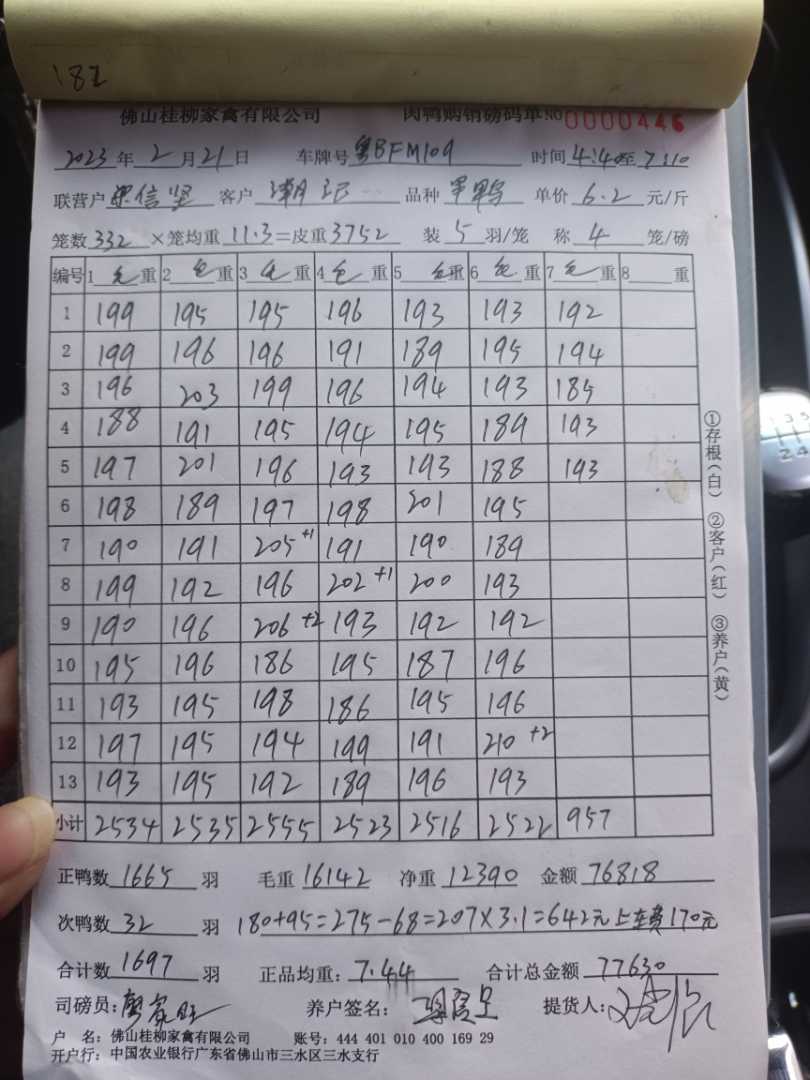 182
佛山桂柳家禽有限公司 肉鸭购销磅码单 NO 0000446
2023年2月21日 车牌号 粤BFM109 时间 4:40至7:10
联营户 信坚 客户 潮记 品种 单价 6.2 元/斤
笼数 332 ×笼均重 11.3=皮重 3752 装 5 羽/笼 称 4 笼/磅
编号 1 毛重 2 毛重 3 毛重 4 毛重 5 毛重 6 毛重 7 毛重 8 重
1 199 195 195 196 193 193 192
2 199 196 196 191 189 195 194
3 196 203 199 196 194 193 185
4 188 191 195 194 195 189 193
5 197 201 196 193 193 188 193
6 198 189 197 198 201 195
7 190 191 205+1 191 190 189
8 199 192 196 202+1 200 193
9 190 196 206+2 193 192 192
10 195 196 186 195 187 196
11 193 195 198 186 195 196
12 197 195 194 199 191 210+2
13 193 195 192 189 196 193
小计 2534 2535 2555 2523 2516 2522 957
①存根(白) ②客户(红) ③养户(黄)
正鸭数 1665 羽 毛重 16142 净重 12390 金额 76818
次鸭数 32 羽 180+95=275-68=207×3.1=642元 上车费170元
合计数 1697 羽 正品均重: 7.44 合计总金额 77630
司磅员: 养户签名: 提货人:
户 名: 佛山桂柳家禽有限公司 账号: 444 401 010 400 169 29
开户行: 中国农业银行广东省佛山市三水区三水支行